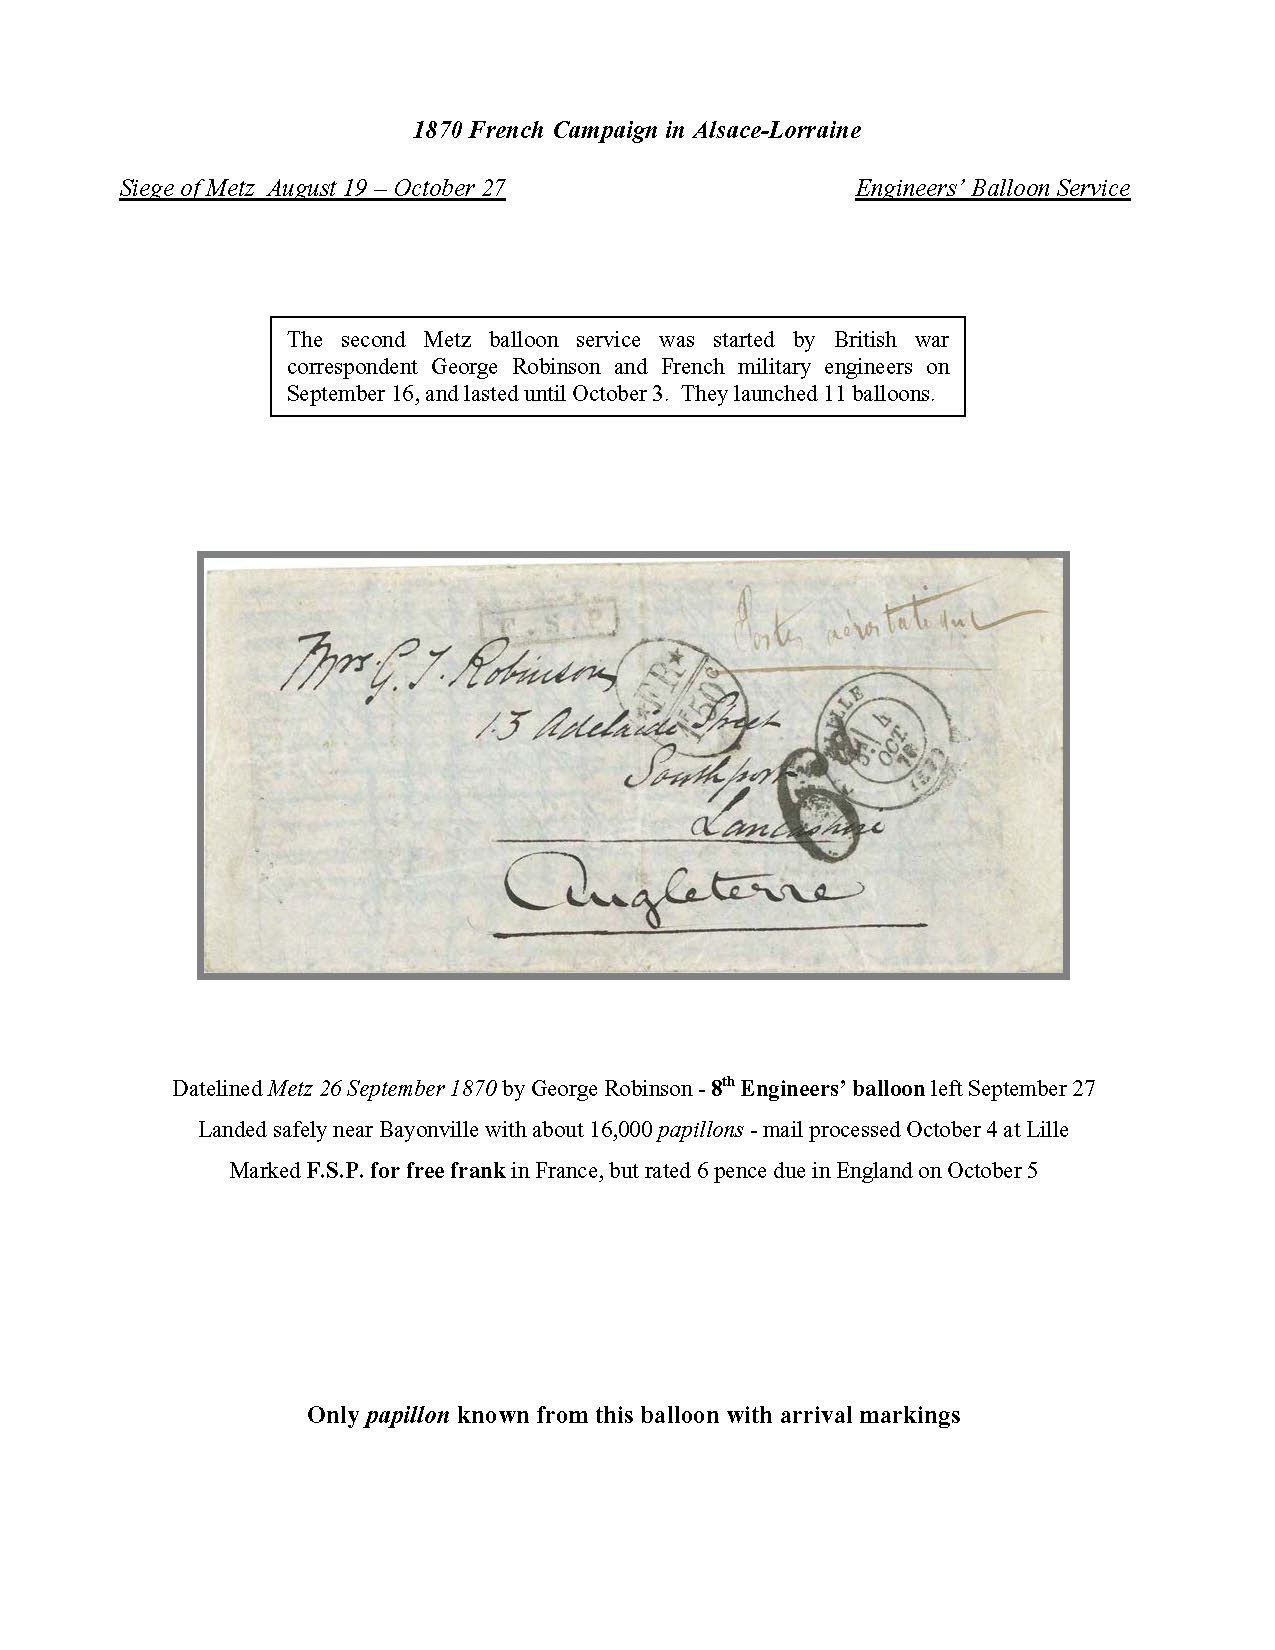 1870 French Campaign in Alsace-Lorraine
Siege of Metz August 19 – October 27
Engineers’ Balloon Service
The second Metz balloon service was started by British war
correspondent George Robinson and French military engineers on
September 16, and lasted until October 3. They launched 11 balloons.
F.S.P.
Postes aérostatique
Mrs. G. T. Robinson
FR
1F50c
13 Adelaide Street
LILLE
4
OCT.
70
Southport
6
Lancashire
Angleterre
Datelined Metz 26 September 1870 by George Robinson - 8th Engineers’ balloon left September 27
Landed safely near Bayonville with about 16,000 papillons - mail processed October 4 at Lille
Marked F.S.P. for free frank in France, but rated 6 pence due in England on October 5
Only papillon known from this balloon with arrival markings